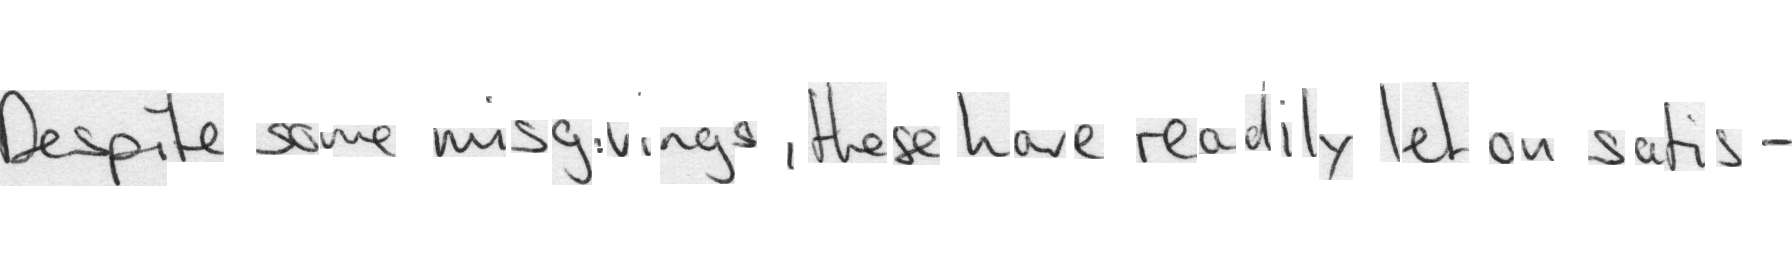 Despite some misgivings, these have readily let on satis-